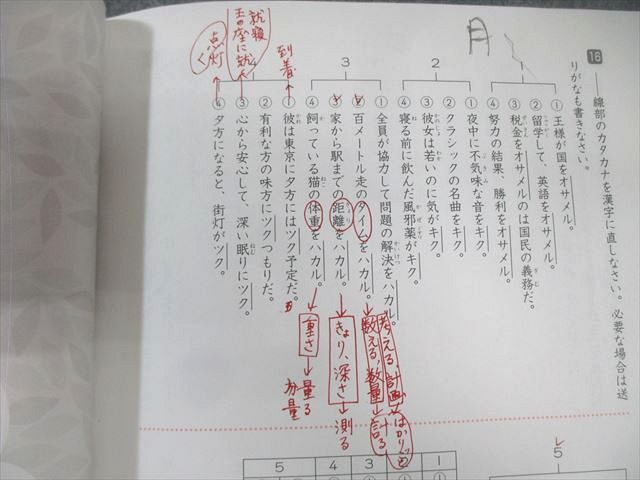 16 ――線部のカタカナを漢字に直しなさい。必要な場合は送
りがなも書きなさい。
月
1
① 王様が国をオサメル。
② 留学して、英語をオサメル。
③ 税金をオサメルのは国民の義務だ。
④ 努力の結果、勝利をオサメル。
2
① 夜中に不気味な音をキク。
② クラシックの名曲をキク。
③ 彼女は若いのに気がキク。
④ 寝る前に飲んだ風邪薬がキク。
3
① 全員が協力して問題の解決をハカル。
② 百メートル走のタイムをハカル。
③ 家から駅までの距離をハカル。
④ 飼っている猫の体重をハカル。
4
① 彼は東京に夕方にはツク予定だ。
② 有利な方の味方にツクつもりだ。
③ 心から安心して、深い眠りにツク。
④ 夕方になると、街灯がツク。
考える、計画
はかりごと
数える、数量
計る
きょり、深さ
測る
重さ
量る
分量
到着
就寝
王の座に就く
点灯
5
1
2
3
4
5